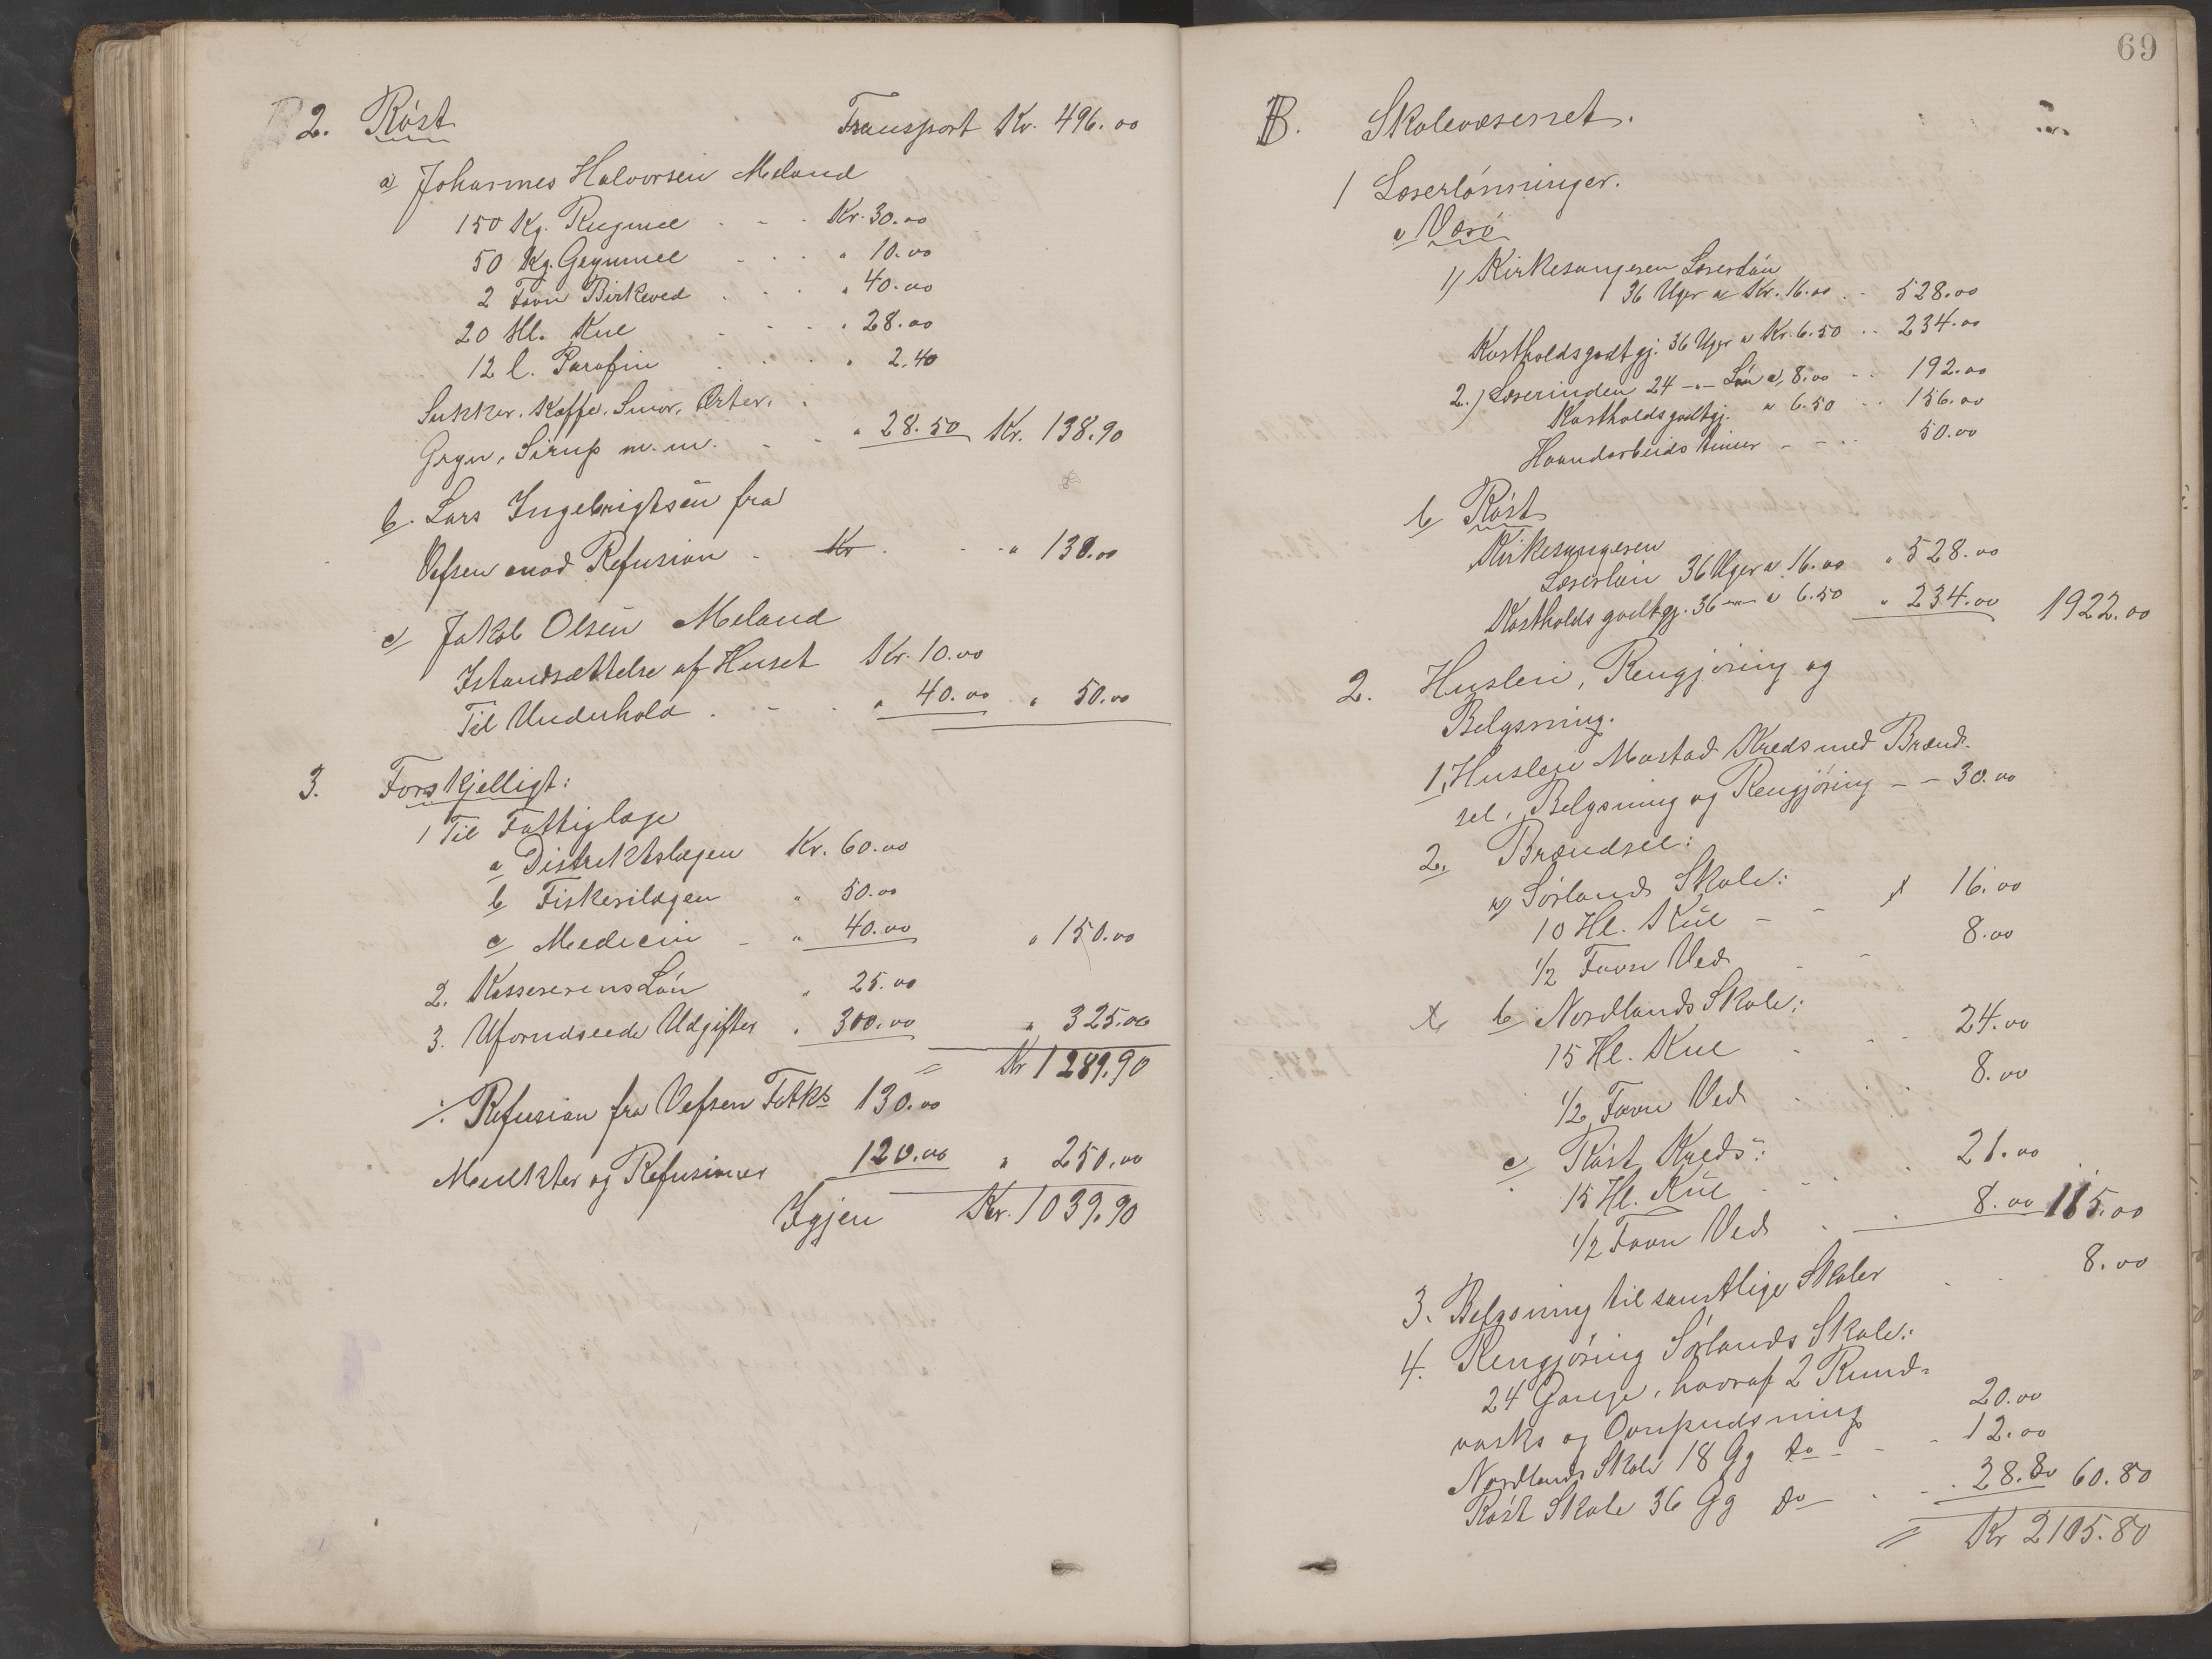 2. Röst Transport Kr. 496.00
a) Johannes Halvorsen Meland
150 Kg. Rugmel - - Kr. 30.00
50 Kg. Grynmel - - " 10.00
2 Favn Birkeved - - " 40.00
20 Hl. Kul - - " 28.00
12 l. Parafin - - " 2.40
Sukker. Kaffe. Smør, Erter,
Gryn, Sirup m.m. - - " 28.50 Kr. 138.90
b. Lars Ingebrigtsen fra
Vefsen mod Refusion - Kr - - " 130.00
c) Jakob Olsen Meland
Istandsættelse af Huset Kr. 10.00
Til Underhold - - " 40.00 " 50.00
3. Forskjelligt:
1 Til Fattiglæge
a Distriktslægen Kr. 60.00
b Fiskerilægen " 50.00
c Medicin - " 40.00 " 150.00
2. Kassererens Løn " 25.00
3. Uforudseede Udgifter " 300.00 " 325.00
= Kr 1289.90
÷ Refusion fra Vefsen Fatks 130.00
Mulkter og Refusioner 120.00 " 250.00
Igjen Kr. 1039.90
69
B. Skolevæsenet.
1 Lærerlønninger.
a Værø
1) Kirkesangeren Lærerløn
36 Uger a Kr. 16.00 - 528.00
Kostholdsgodtgj. 36 Uger a Kr. 6.50 - 234.00
2.) Lærerinden 24 -"- Løn a 8.00 - 192.00
Kostholdsgodtgj. a 6.50 - 156.00
Haandarbeidstimer - - 50.00
b Röst
Kirkesangeren
Lærerløn 36 Uger a 16.00 " 528.00
Kostholdsgodtgj. 36 -"- a 6.50 " 234.00 1922.00
2. Husleie, Rengjøring og
Belysning.
1, Husleie Mostad Kreds med Brænd-
sel, Belysning og Rengjøring - - 30.00
2. Brændsel:
a) Sørlands Skole:
10 Hl. Kul - - 16.00
1/2 Favn Ved - - 8.00
b Nordlands Skole:
15 Hl. Kul - - 24.00
1/2 Favn Ved - - 8.00
c Röst Kreds:
15 Hl. Kul - - 21.00
1/2 Favn Ved - - 8.00 115.00
3. Belysning til samtlige Skoler - - 8.00
4. Rengjøring Sørlands Skole:
24 Gange, hvoraf 2 Rund-
vasks og Ovnpudsning 20.00
Nordlands Skole 18 Gg do - - 12.00
Röst Skole 36 Gg do - - 28.80 60.80
= Kr 2105.80